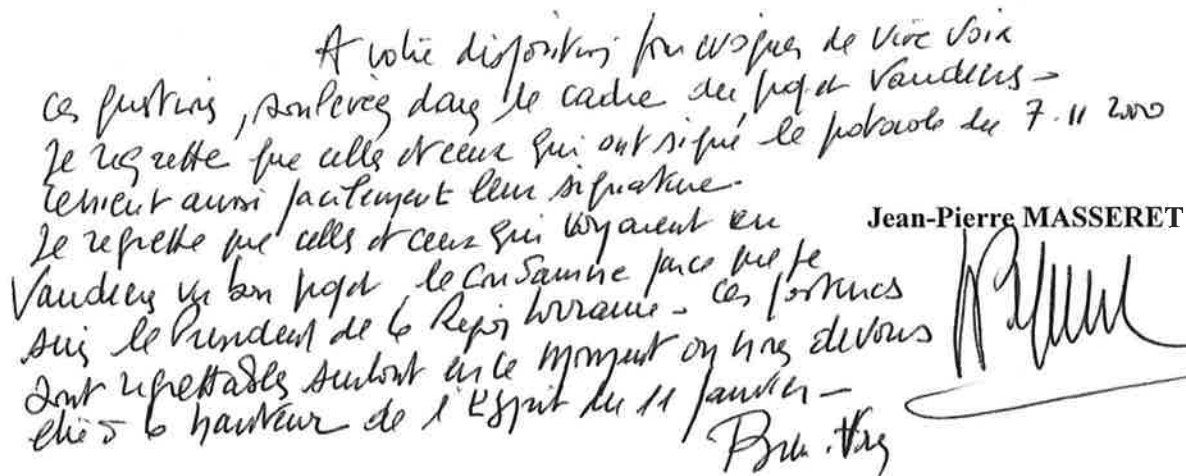 A votre disposition pour évoquer de vive voix
ces questions, soulevées dans le cadre du projet Vandières -
Je regrette que celles et ceux qui ont signé le protocole du 7.11 2000
renient aussi facilement leur signature.
Je regrette que celles et ceux qui voyaient en
Jean-Pierre MASSERET
Vandières un bon projet le condamne parce que je
suis le Président de la Région Lorraine - ces postures
sont regrettables surtout en ce moment où nous devons
être à la hauteur de l'Esprit du 11 Janvier -